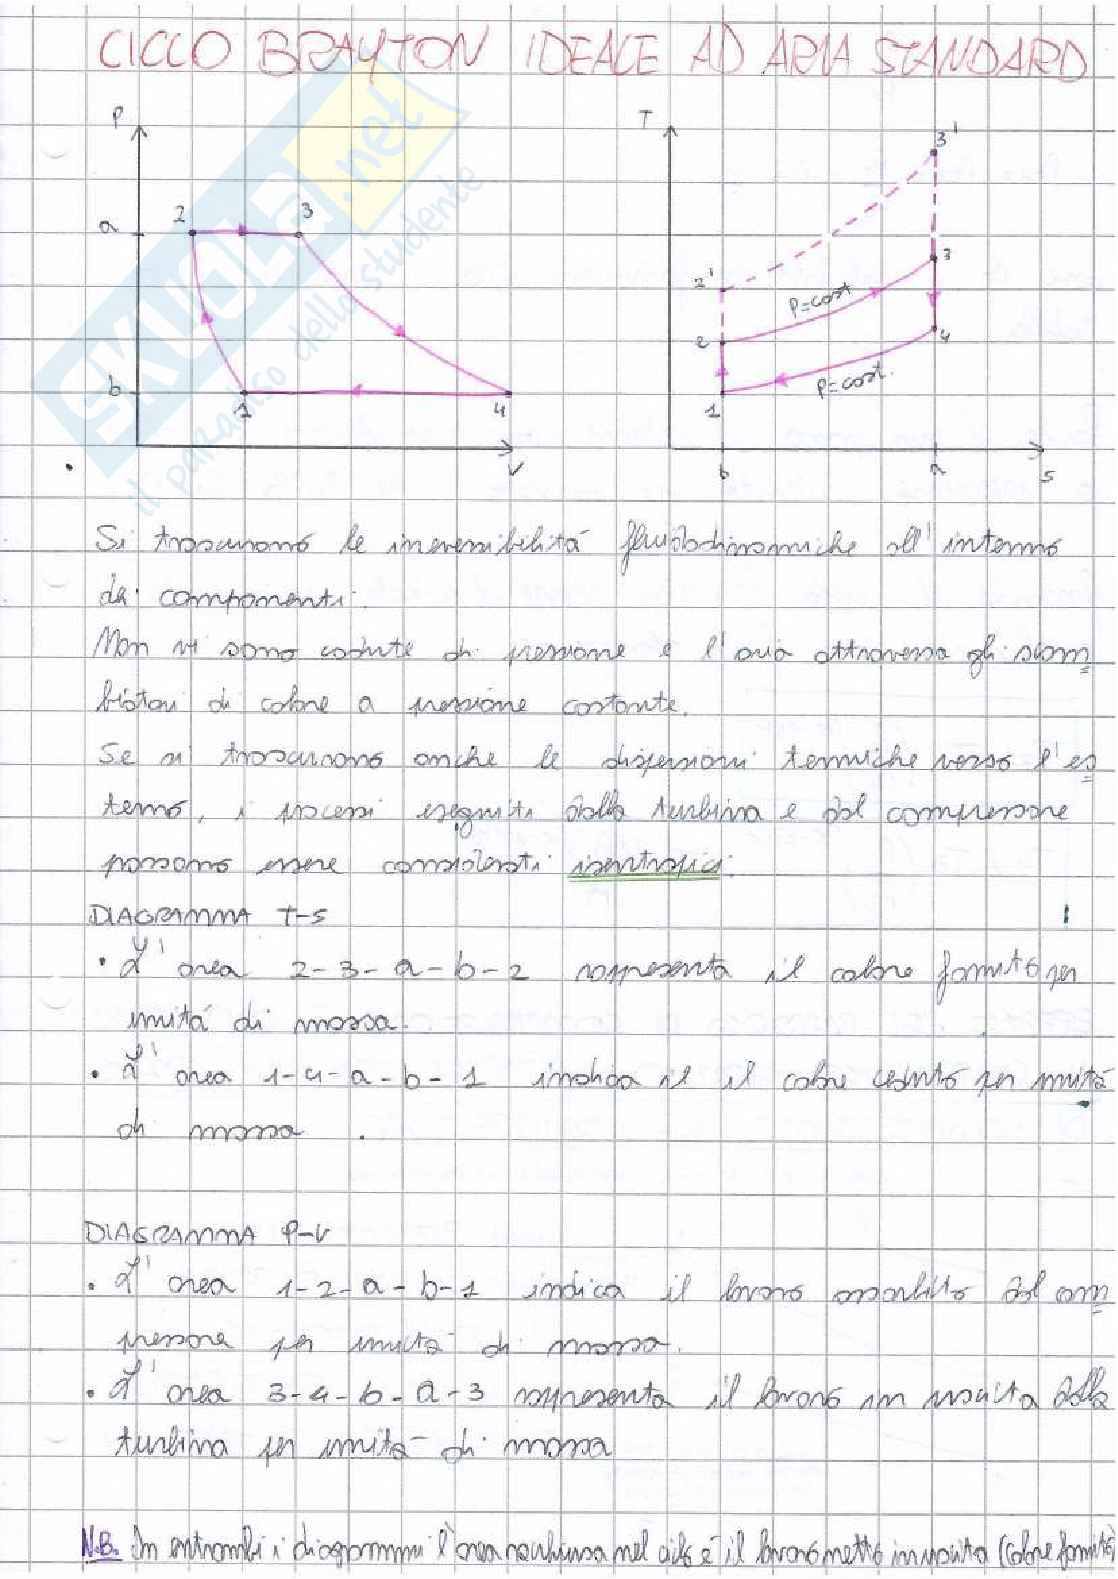 CICLO BRAYTON IDEALE AD ARIA STANDARD
P
T
3'
2
3
a
2'
3
P=cost
2
4
b
1
4
P=cost.
1
V
b
a
S
SKUOLA.net
il paradiso dello studente
Si trascurano le irreversibilità fluidodinamiche all'interno
dei componenti.
Non vi sono cadute di pressione e l'aria attraversa gli scam
biatori di calore a pressione costante.
Se si trascurano anche le dispersioni termiche verso l'es
terno, i processi eseguiti dalla turbina e dal compressore
possono essere considerati isentropici.
DIAGRAMMA T-S
• L'area 2-3-a-b-2 rappresenta il calore fornito per
unità di massa.
• L'area 1-4-a-b-1 indica il il calore ceduto per unità
di massa.
DIAGRAMMA P-V
• L'area 1-2-a-b-1 indica il lavoro assorbito dal com
pressore per unità di massa.
• L'area 3-4-b-a-3 rappresenta il lavoro in uscita dalla
turbina per unità di massa
N.B. In entrambi i diagrammi l'area racchiusa nel ciclo è il lavoro netto in uscita (calore fornito